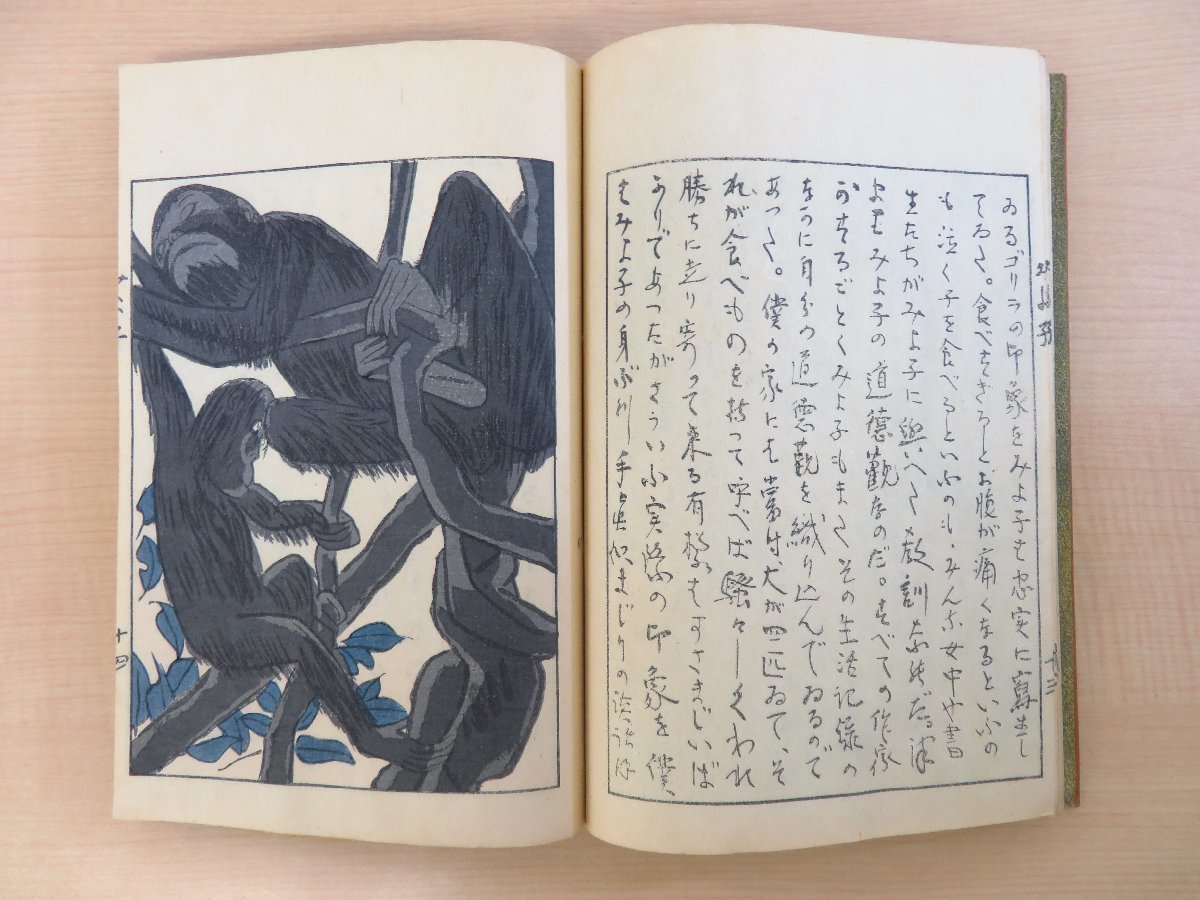 ゐるゴリラの印象をみよ子も忠実に寫生し
てゐた。食べすぎるとお腹が痛くなるといふの
も泣く子を食べるといふのも、みんな女中や書
生たちがみよ子に與へた教訓なのだ。
みよ子の道徳觀なのだ。すべての作家
がするごとくみよ子もまたその生活記録の
なかに自分の道徳觀を織り込んでゐるので
あつた。僕の家にも當時、犬が四匹ゐて、そ
れが食べものを持つて呼べば騒々しくわれ
勝ちに走り寄つて来る有様もすさまじいば
かりであつたがさういふ実際の印象を僕
はみよ子の身ぶり手真似まじりの
十四